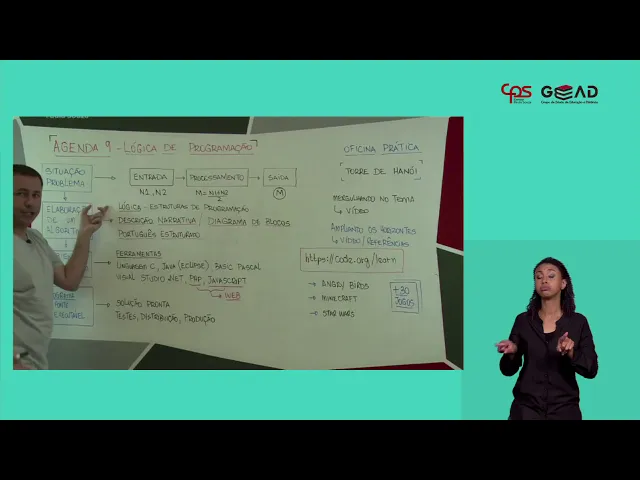 CPS
GEAD
Grupo de Estudo de Educação a Distância
AGENDA 9 - LÓGICA DE PROGRAMAÇÃO
SITUAÇÃO
PROBLEMA
ENTRADA
PROCESSAMENTO
SAÍDA
N1, N2
M= N1+N2
2
M
ELABORAÇÃO
DE UM
LÓGICA - ESTRUTURAS DE PROGRAMAÇÃO
DESCRIÇÃO NARRATIVA / DIAGRAMA DE BLOCOS
PORTUGUÊS ESTRUTURADO
FERRAMENTAS
LINGUAGEM C, JAVA (ECLIPSE) BASIC PASCAL
VISUAL STUDIO .NET, PHP, JAVASCRIPT
WEB
FONTE
EXECUTÁVEL
SOLUÇÃO PRONTA
TESTES, DISTRIBUIÇÃO, PRODUÇÃO
OFICINA PRÁTICA
TORRE DE HANÓI
MERGULHANDO NO TEMA
VÍDEO
AMPLIANDO OS HORIZONTES
VÍDEO / REFERÊNCIAS
https://code.org/learn
ANGRY BIRDS
MINECRAFT
STAR WARS
+30
JOGOS